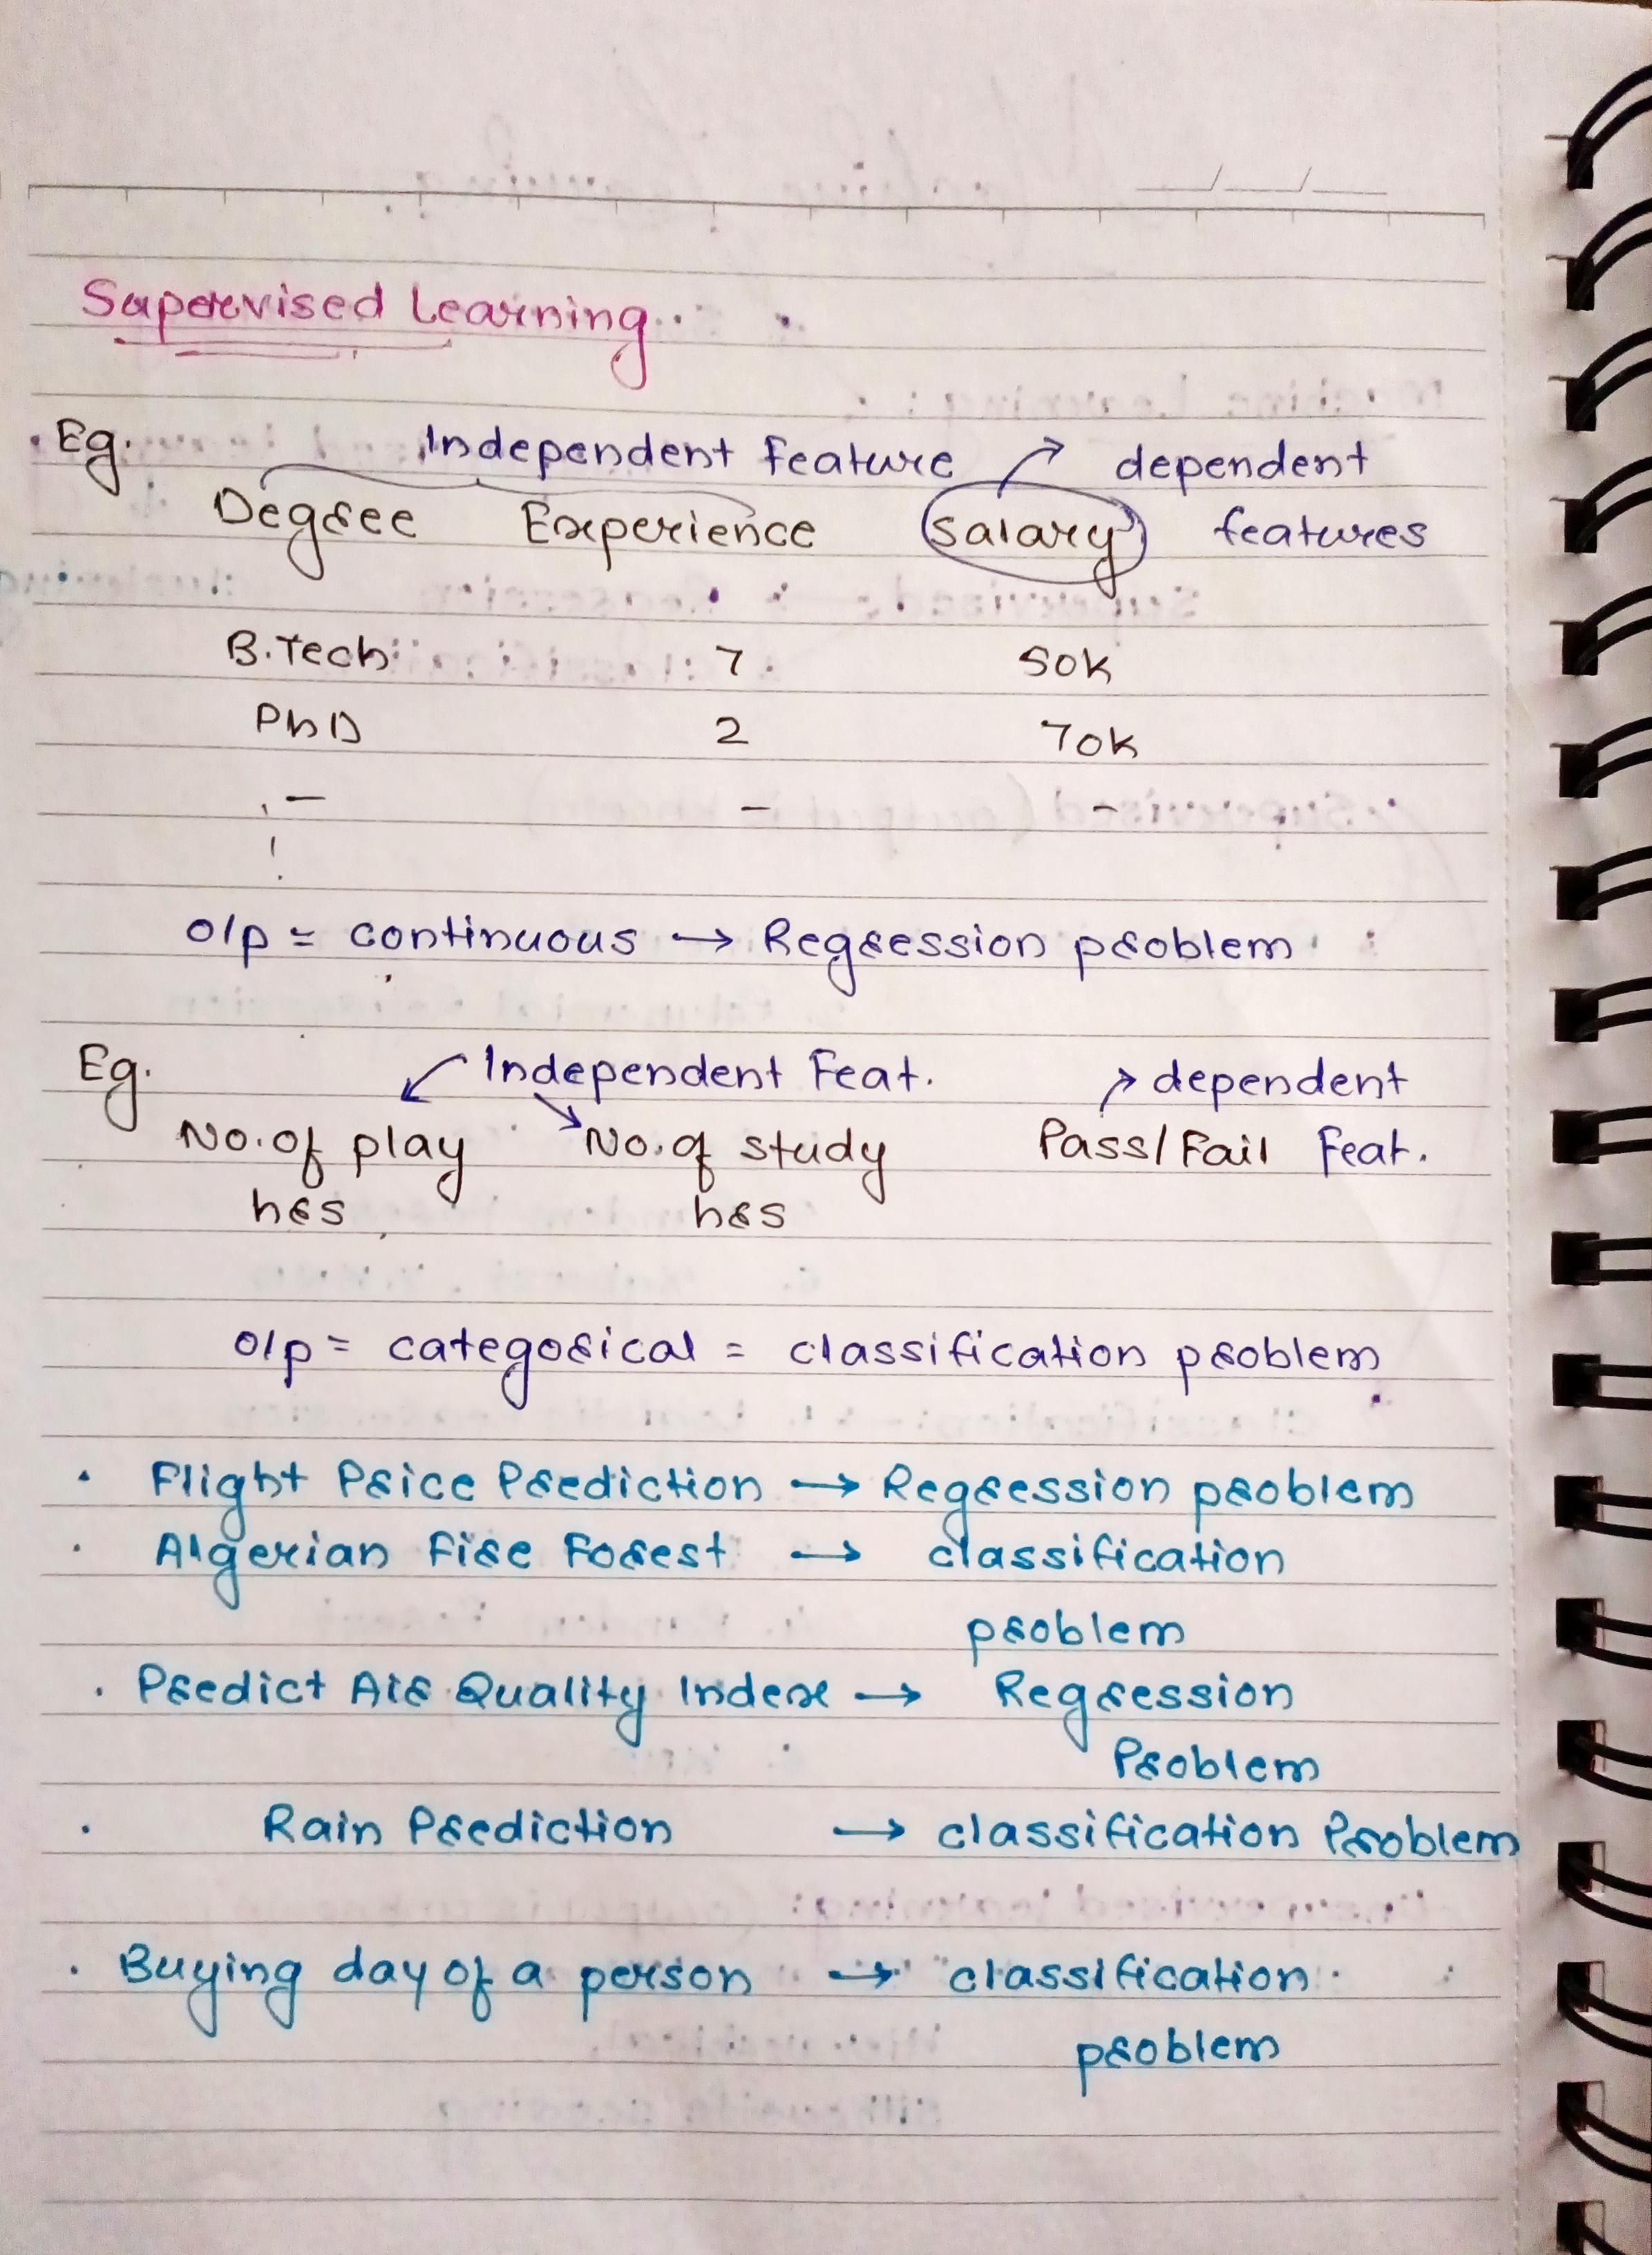 Supervised Learning
Eg. Independent Feature dependent
Degree Experience Salary features
B.Tech 7 50K
PhD 2 70K
- - -
o/p = continuous → Regression problem
Eg. Independent Feat. dependent
No. of play No. of study Pass/Fail Feat.
hrs hrs
o/p = categorical = classification problem
• Flight Price Prediction → Regression problem
• Algerian Fire Forest → classification
problem
• Predict Air Quality Index → Regression
Problem
• Rain Prediction → classification Problem
• Buying day of a person → classification
problem